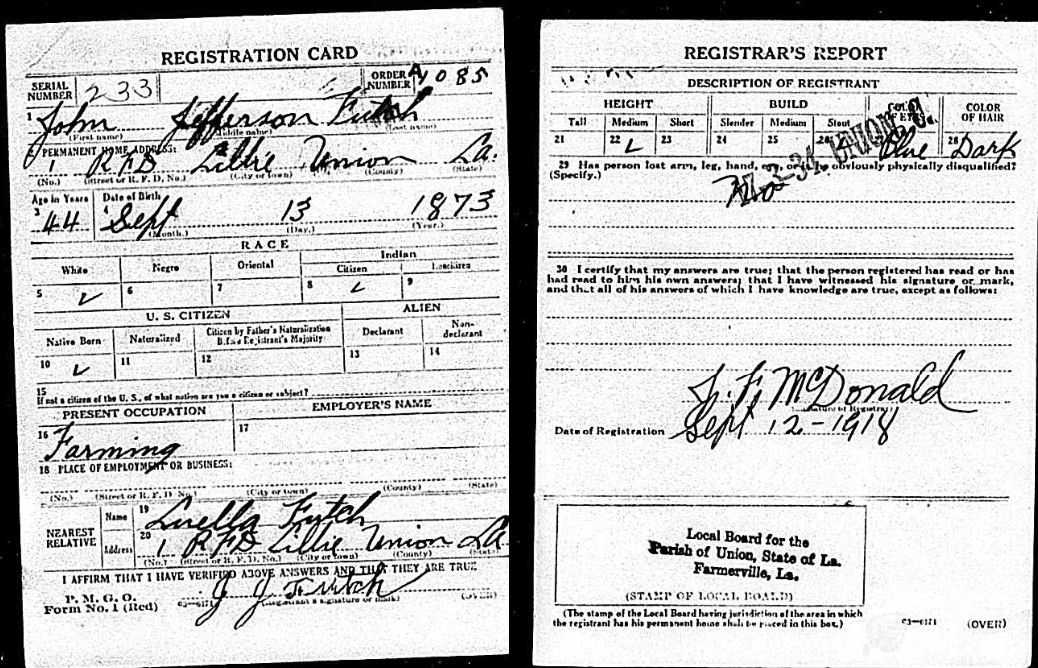 REGISTRATION CARD
SERIAL NUMBER 233
ORDER NUMBER A 1085
1 John Jefferson Futch
(First name) (Middle name) (Last name)
2 PERMANENT HOME ADDRESS:
1 RFD Lillie Union La.
(No.) (Street or R. F. D. No.) (City or town) (County) (State)
Age in Years Date of Birth
3 44 4 Sept 13 1873
(Month.) (Day.) (Year.)
RACE
White Negro Oriental Indian
Citizen Noncitizen
5 ✓ 6 7 8 ✓ 9
U. S. CITIZEN ALIEN
Native Born Naturalized Citizen by Father's Naturalization Before Registrant's Majority Declarant Non-declarant
10 ✓ 11 12 13 14
15
If not a citizen of the U. S., of what nation are you a citizen or subject?
PRESENT OCCUPATION EMPLOYER'S NAME
16 Farming 17
18 PLACE OF EMPLOYMENT OR BUSINESS:
(No.) (Street or R. F. D. No.) (City or town) (County) (State)
NEAREST RELATIVE
Name 19 Luella Futch
Address 20 1 RFD Lillie Union La
(No.) (Street or R. F. D. No.) (City or town) (County) (State)
I AFFIRM THAT I HAVE VERIFIED ABOVE ANSWERS AND THAT THEY ARE TRUE
J J Futch
P. M. G. O.
Form No. 1 (Red) c3—6171 (Registrant's signature or mark) (OVER)
REGISTRAR'S REPORT
DESCRIPTION OF REGISTRANT
HEIGHT BUILD COLOR OF EYES COLOR OF HAIR
Tall Medium Short Slender Medium Stout
21 22 ✓ 23 24 25 26 27 Blue 28 Dark
29 Has person lost arm, leg, hand, eye, or is he obviously physically disqualified?
(Specify.) No
30 I certify that my answers are true; that the person registered has read or has
had read to him his own answers; that I have witnessed his signature or mark,
and that all of his answers of which I have knowledge are true, except as follows:
McDonald
(Signature of Registrar)
Date of Registration Sept 12-1918
Local Board for the
Parish of Union, State of La.
Farmerville, La.
(STAMP OF LOCAL BOARD)
(The stamp of the Local Board having jurisdiction of the area in which
the registrant has his permanent home shall be placed in this box.)
c3—6171 (OVER)